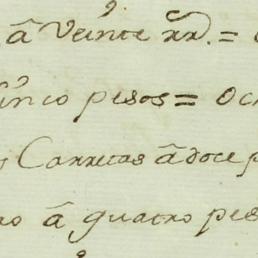 â Veinte rr.ˢ =
inco pesos = Och
Carretas â doce p
ro â quatro pes